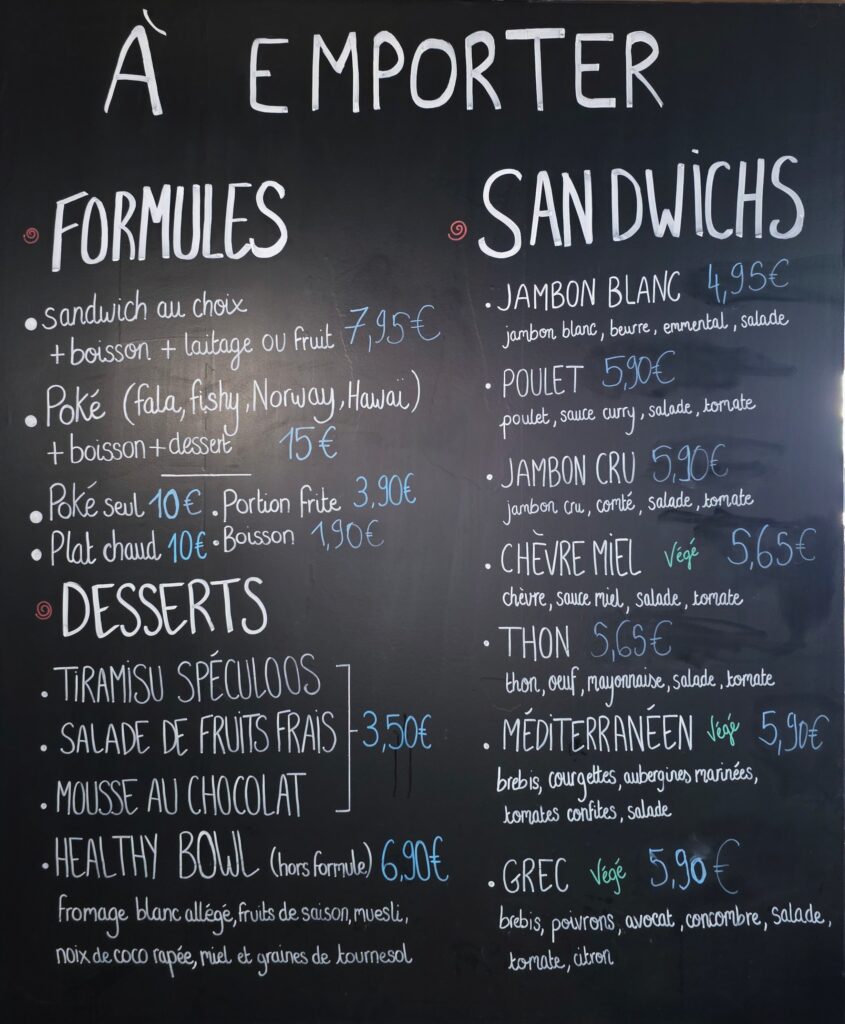 À EMPORTER
FORMULES
• sandwich au choix
+ boisson + laitage ou fruit 7,95€
• Poké (fala, fishy, Norway, Hawaï)
+ boisson + dessert 15€
• Poké seul 10€ • Portion frite 3,90€
• Plat chaud 10€ • Boisson 1,90€
DESSERTS
• TIRAMISU SPÉCULOOS
• SALADE DE FRUITS FRAIS 3,50€
• MOUSSE AU CHOCOLAT
• HEALTHY BOWL (hors formule) 6,90€
fromage blanc allégé, fruits de saison, muesli,
noix de coco rapée, miel et graines de tournesol
SANDWICHS
• JAMBON BLANC 4,95€
jambon blanc, beurre, emmental, salade
• POULET 5,90€
poulet, sauce curry, salade, tomate
• JAMBON CRU 5,90€
jambon cru, comté, salade, tomate
• CHÈVRE MIEL végé 5,65€
chèvre, sauce miel, salade, tomate
• THON 5,65€
thon, oeuf, mayonnaise, salade, tomate
• MÉDITERRANÉEN végé 5,90€
brebis, courgettes, aubergines marinées,
tomates confites, salade
• GREC végé 5,90€
brebis, poivrons, avocat, concombre, salade,
tomate, citron